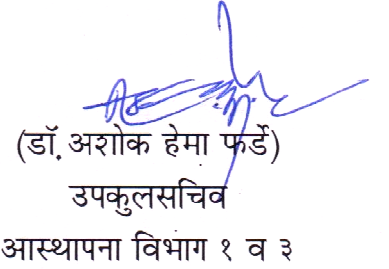 (डॉ. अशोक हेमा फर्डे)
उपकुलसचिव
आस्थापना विभाग १ व ३